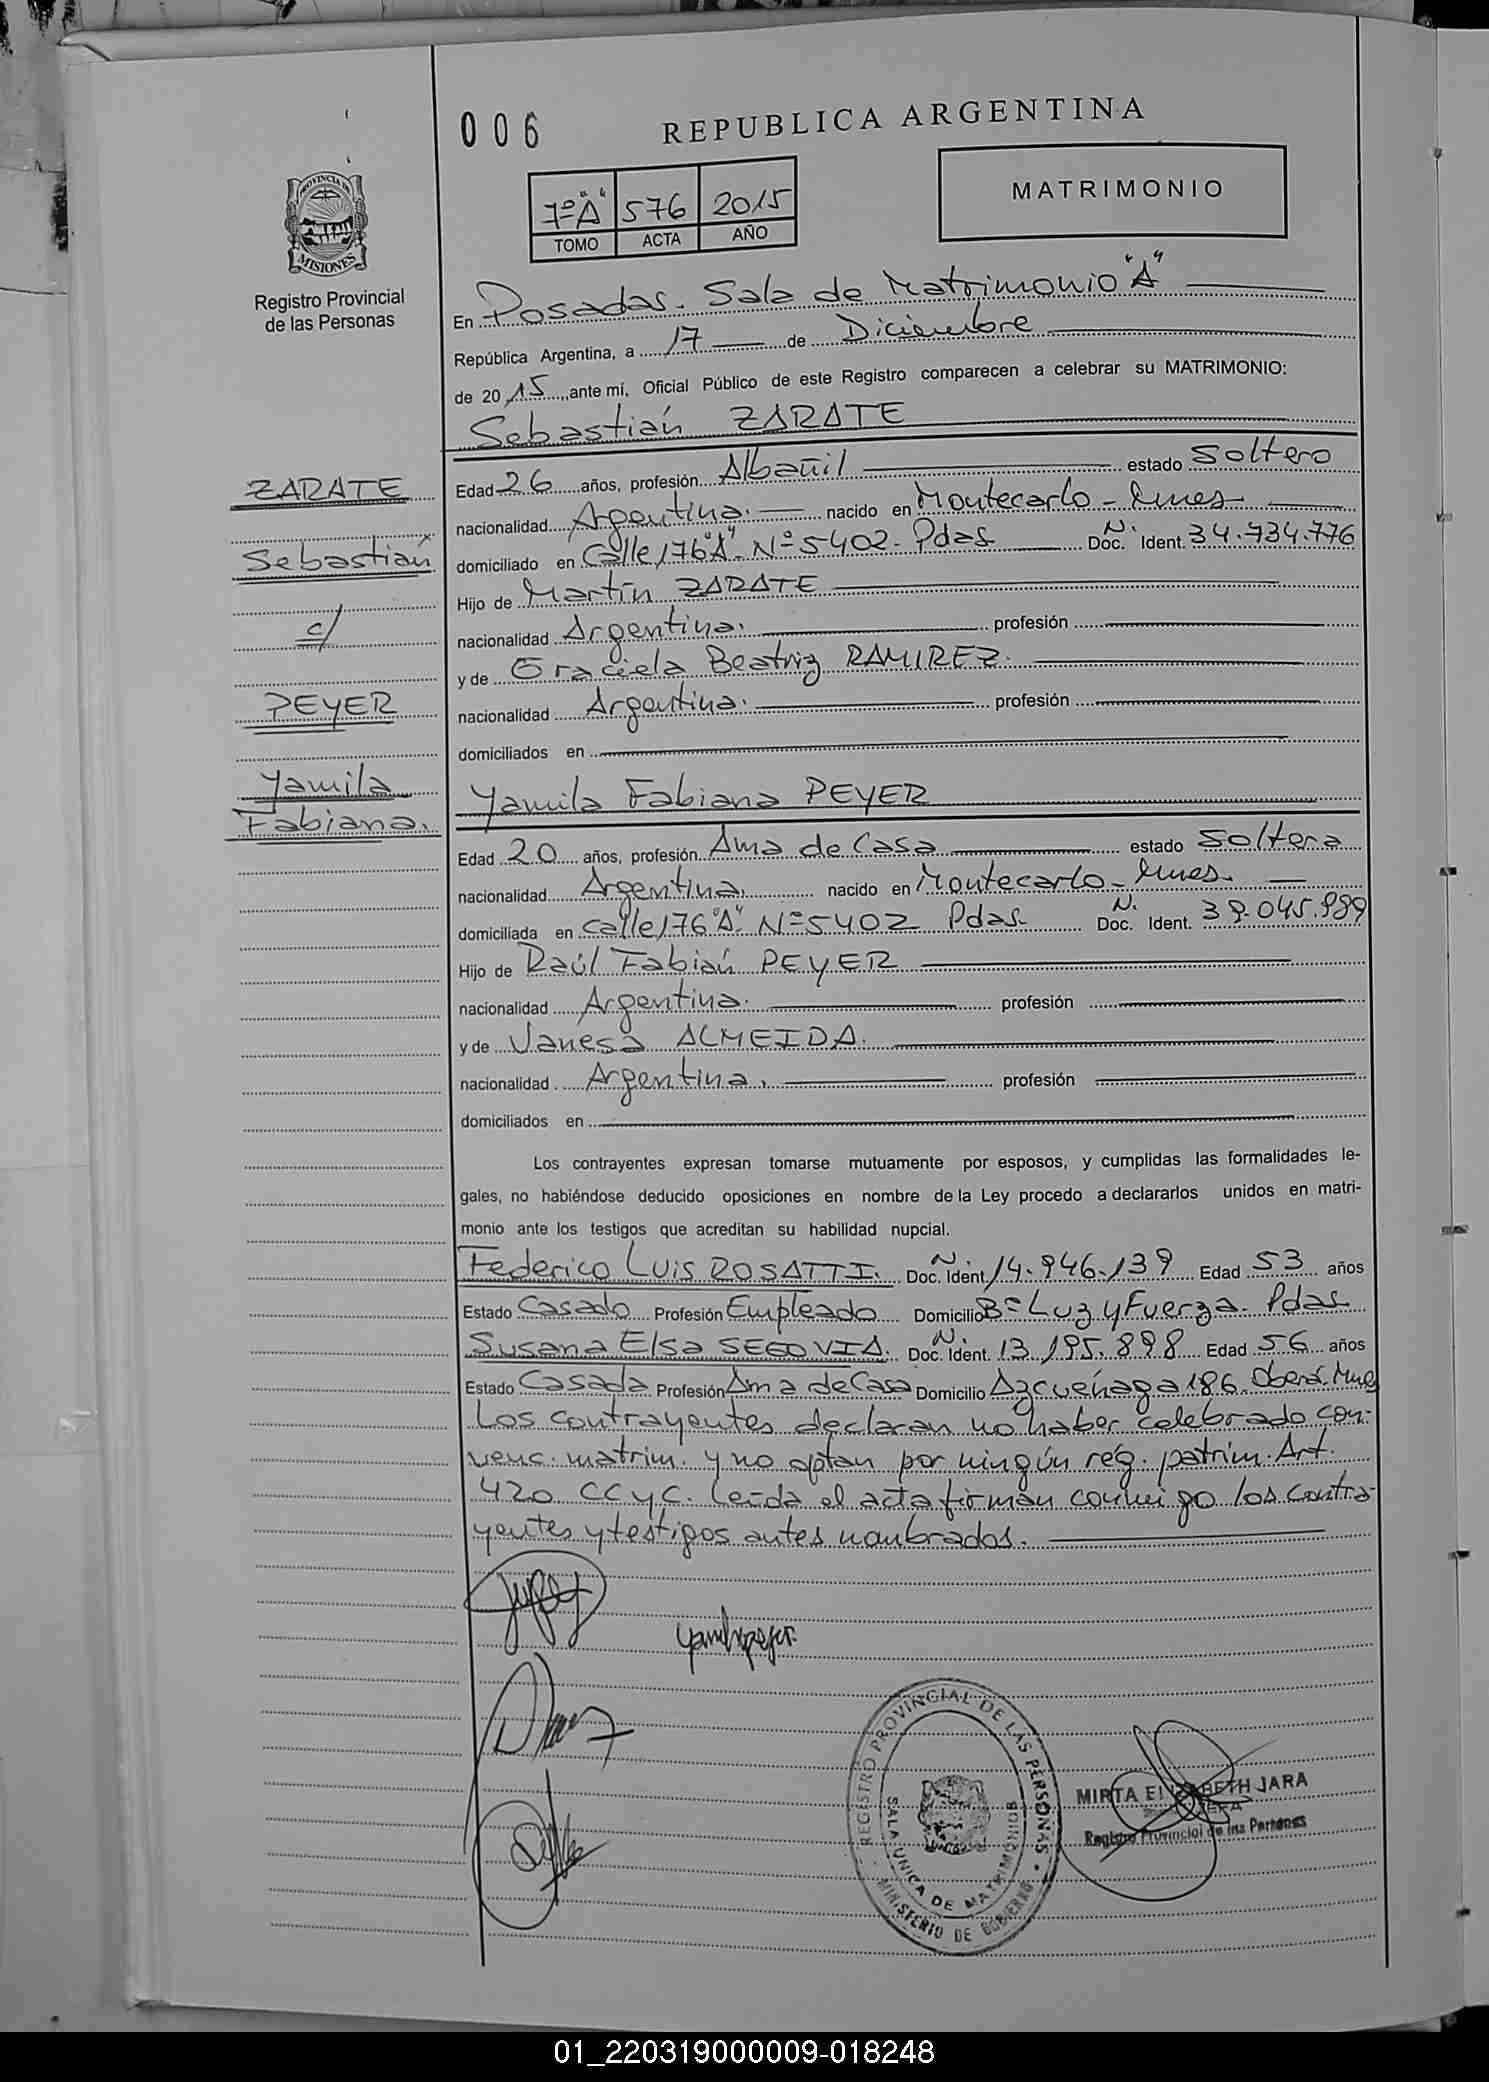 006
REPUBLICA ARGENTINA
7º "A" 576 2015
TOMO ACTA AÑO
MATRIMONIO
PROVINCIA DE
MISIONES
Registro Provincial
de las Personas
En Posadas. Sala de Matrimonio "A"
República Argentina, a 17 de Diciembre
de 2015, ante mí, Oficial Público de este Registro comparecen a celebrar su MATRIMONIO:
Sebastián ZARATE
ZARATE
Sebastián
c/
PEYER
Yamila
Fabiana.
Edad 26 años, profesión Albañil estado Soltero
nacionalidad Argentina. nacido en Montecarlo - Mnes
domiciliado en Calle 176 "A" Nº 5402. Pdas Doc. N. Ident. 34.734.776
Hijo de Martín ZARATE
nacionalidad Argentina. profesión
y de Graciela Beatriz RAMIREZ.
nacionalidad Argentina. profesión
domiciliados en
Yamila Fabiana PEYER
Edad 20 años, profesión Ama de Casa estado Soltera
nacionalidad Argentina. nacido en Montecarlo - Mnes.
domiciliada en Calle 176 "A" Nº 5402 Pdas Doc. N. Ident. 39.045.989
Hijo de Raúl Fabián PEYER
nacionalidad Argentina. profesión
y de Vanesa ALMEIDA.
nacionalidad Argentina. profesión
domiciliados en
Los contrayentes expresan tomarse mutuamente por esposos, y cumplidas las formalidades le-
gales, no habiéndose deducido oposiciones en nombre de la Ley procedo a declararlos unidos en matri-
monio ante los testigos que acreditan su habilidad nupcial.
Federico Luis ROSATTI. Doc. N. Ident. 14.946.139 Edad 53 años
Estado Casado Profesión Empleado Domicilio Bº Luz y Fuerza. Pdas
Susana Elsa SEGOVIA. Doc. N. Ident. 13.195.898 Edad 56 años
Estado Casada Profesión Ama de Casa Domicilio Azcuénaga 186. Oberá. Mnes
Los contrayentes declaran no haber celebrado con-
venc. matrim. y no optan por ningún rég. patrim. Art.
420 CCyC. Leída el acta firman conmigo los contra-
yentes y testigos antes nombrados.
REGISTRO PROVINCIAL DE LAS PERSONAS
SALA UNICA DE MATRIMONIOS
MINISTERIO DE GOBIERNO
MIRTA ELIZABETH JARA
JEFA
Registro Provincial de las Personas
01_220319000009-018248